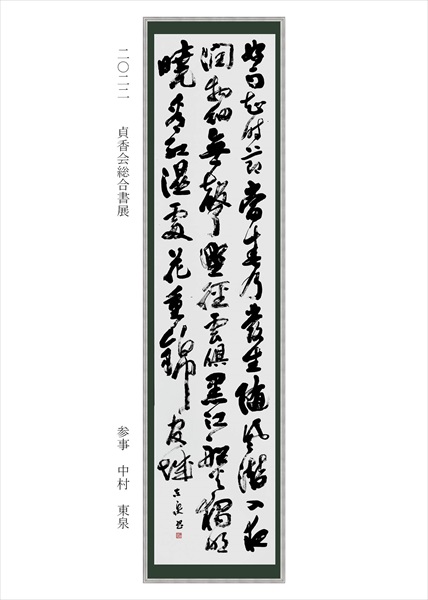 好雨知時節當春乃發生随風潜入夜
潤物細無聲野徑雲俱黒江船火獨明
曉看紅湿處花重錦官城
東泉書
二〇二二 貞香会総合書展
参事 中村 東泉